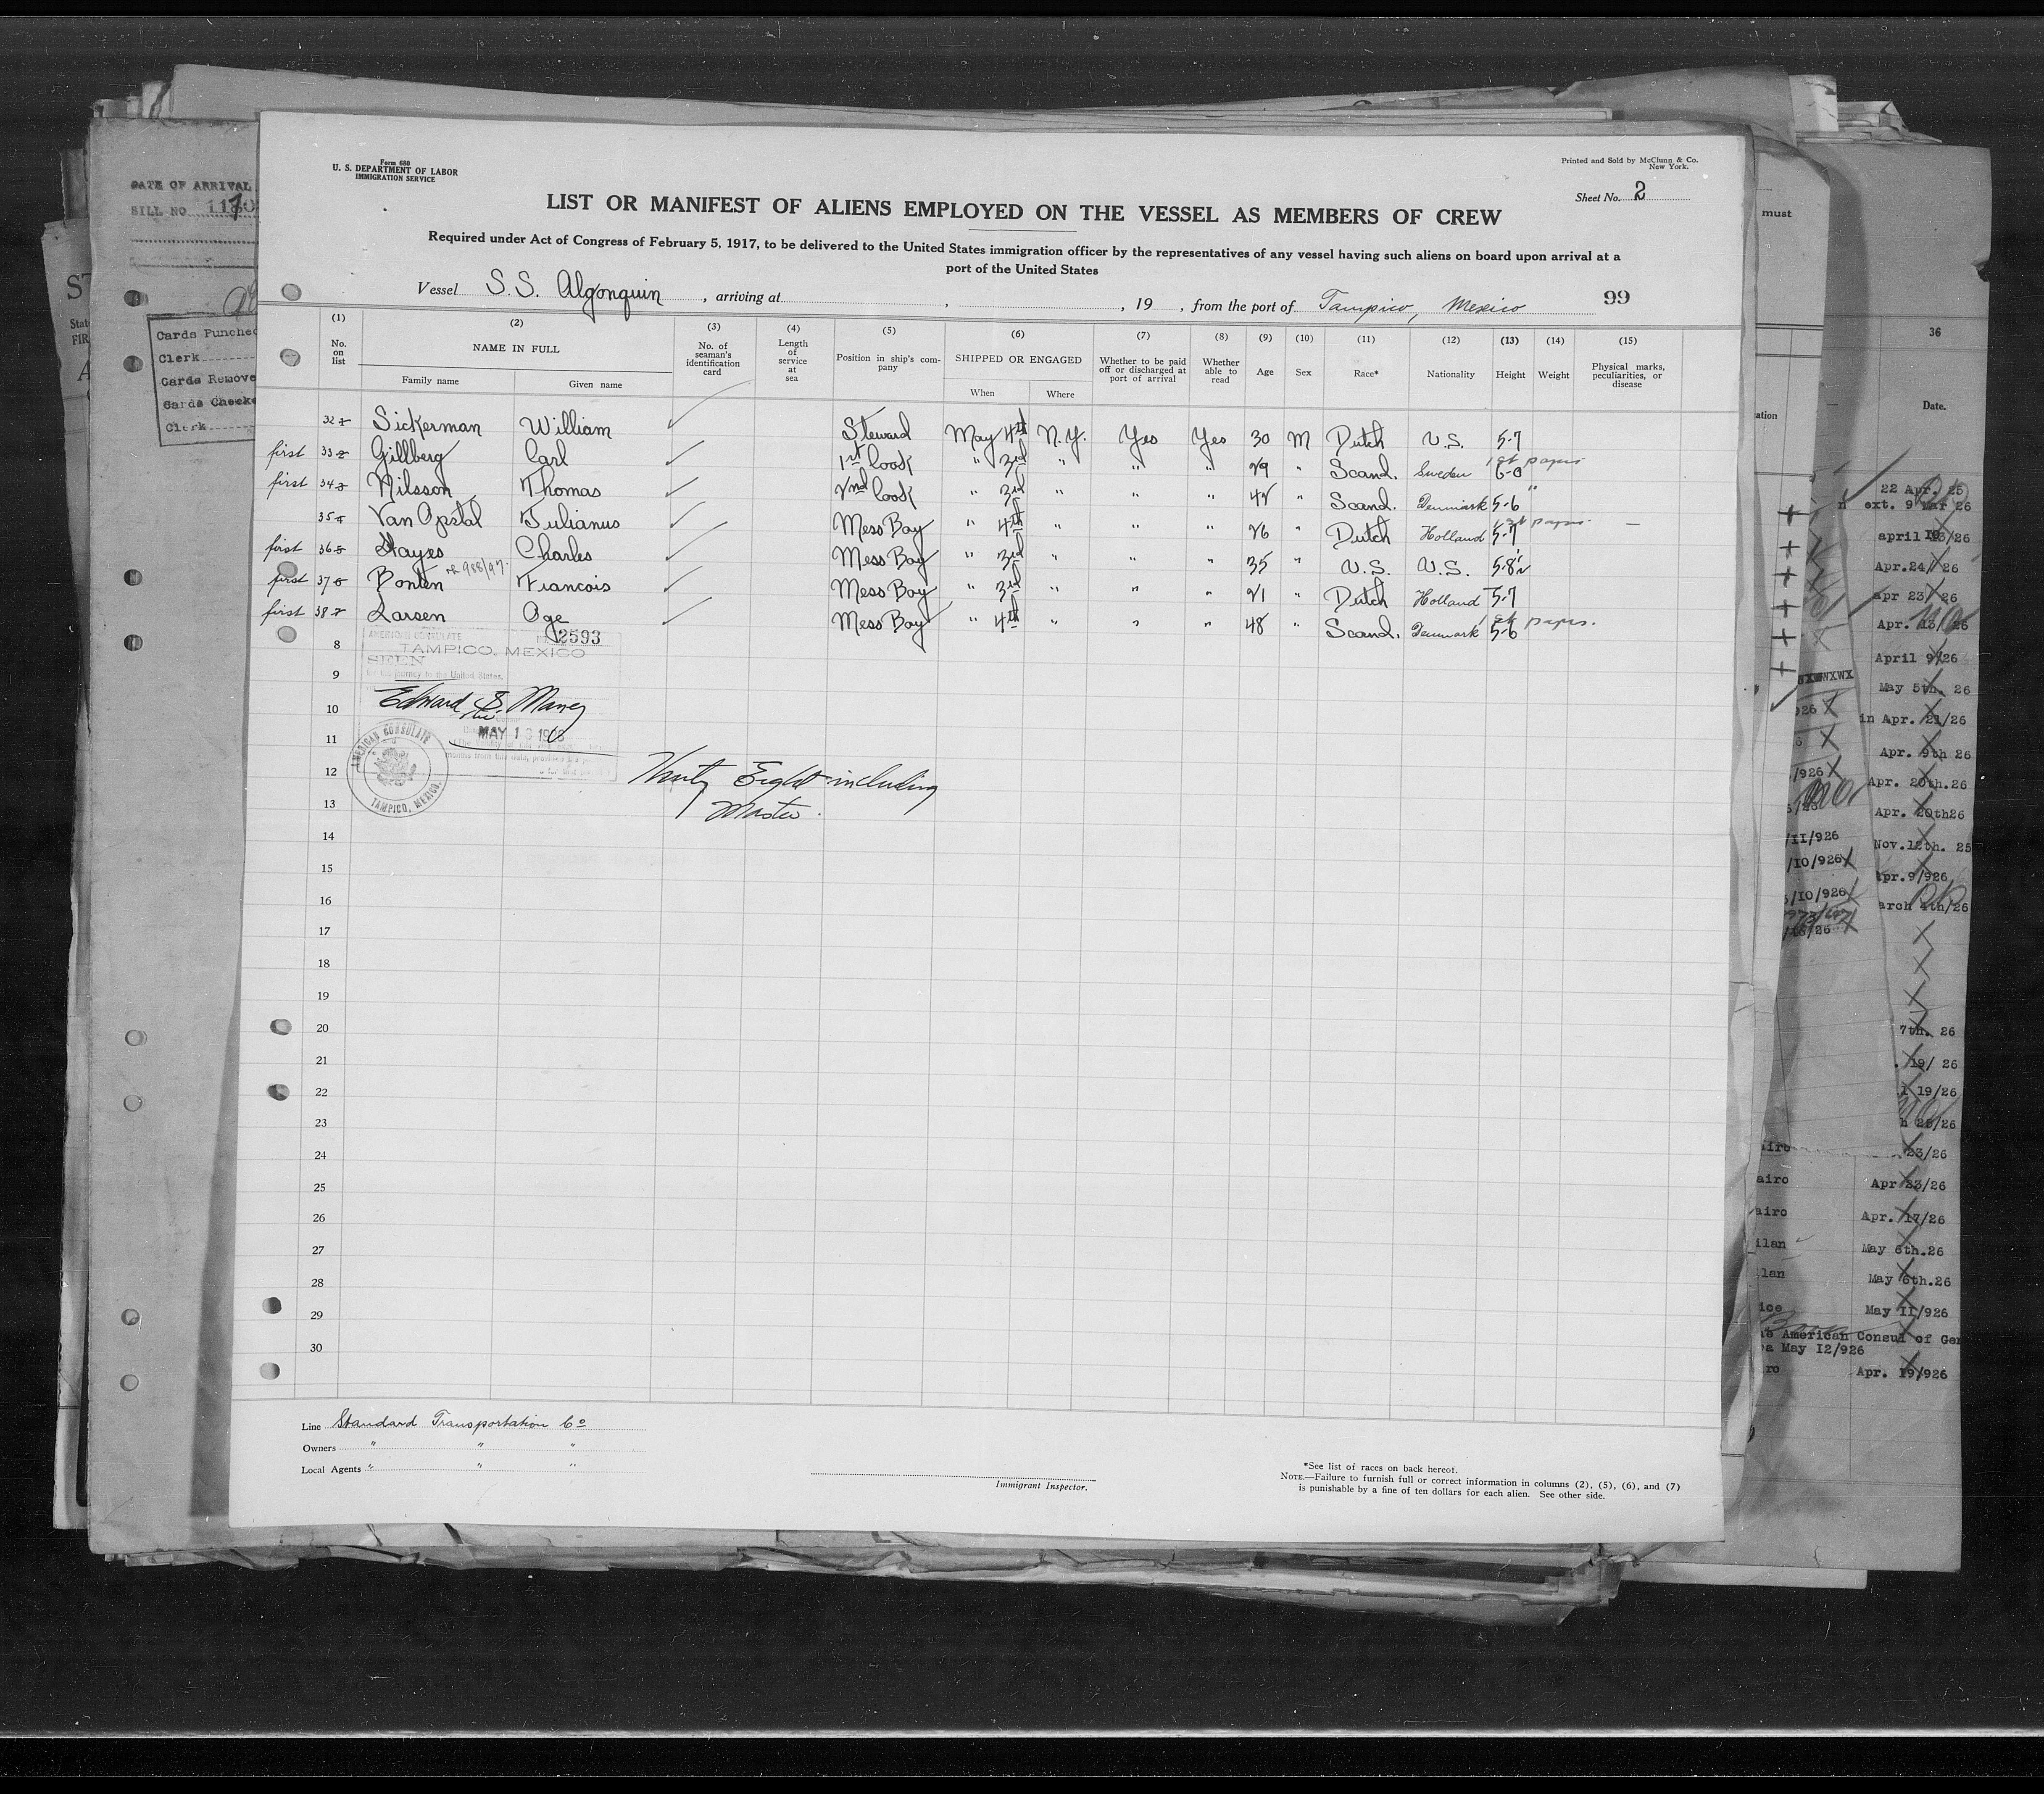 Form 680
U. S. DEPARTMENT OF LABOR
IMMIGRATION SERVICE
Printed and Sold by McClunn & Co.
New York.
Sheet No. 2
LIST OR MANIFEST OF ALIENS EMPLOYED ON THE VESSEL AS MEMBERS OF CREW
Required under Act of Congress of February 5, 1917, to be delivered to the United States immigration officer by the representatives of any vessel having such aliens on board upon arrival at a
port of the United States
Vessel S.S. Algonquin, arriving at , , 19 , from the port of Tampico, Mexico 99
(1) (2) (3) (4) (5) (6) (7) (8) (9) (10) (11) (12) (13) (14) (15)
No. on list
NAME IN FULL
Family name Given name
No. of seaman's identification card
Length of service at sea
Position in ship's company
SHIPPED OR ENGAGED
When Where
Whether to be paid off or discharged at port of arrival
Whether able to read
Age Sex Race* Nationality Height Weight
Physical marks, peculiarities, or disease
32 Sickerman William Steward May 4th N.Y. Yes Yes 30 M Dutch U.S. 5-7
first 33 Gillberg Carl 1st Cook " 3rd " " " 29 " Scand. Sweden 6-0 1st papers
first 34 Nilsson Thomas 2nd Cook " 3rd " " " 42 " Scand. Denmark 5-6 "
35 Van Opstal Julianus Mess Boy " 4th " " " 26 " Dutch Holland 5-7 1st papers. —
first 36 Hayes Charles Mess Boy " 3rd " " " 35 " U.S. U.S. 5-8½
first 37 Bonten Francois Mess Boy " 3rd " " " 21 " Dutch Holland 5-7
first 38 Larsen Oge Mess Boy " 4th " " " 48 " Scand. Denmark 5-6 1st papers.
8
AMERICAN CONSULATE
2593
TAMPICO, MEXICO
SEEN
9
journey to the United States.
10
Edward S. Maney
11
MAY 13
AMERICAN CONSULATE
TAMPICO, MEXICO
12
Thirty Eight including
Master.
13
14
15
16
17
18
19
20
21
22
23
24
25
26
27
28
29
30
Line Standard Transportation Co
Owners " " "
Local Agents " " "
Immigrant Inspector.
*See list of races on back hereof.
NOTE.—Failure to furnish full or correct information in columns (2), (5), (6), and (7)
is punishable by a fine of ten dollars for each alien. See other side.
DATE OF ARRIVAL
BILL NO
Cards Punched
Clerk
Cards Remove
Cards Checke
Clerk
must
36
Date.
22 Apr. 25
ext. 9 Mar 26
Apr.24/ 26
apr 23/ 26
Apr. 13/ 26
April 9/26
May 5th. 26
in Apr. 21/26
Apr. 9th 26
Apr. 20th.26
Apr. 20th26
/11/926
Nov.12th. 25
/10/926
Apr.9/926
/10/926
arch 4th/26
7th. 26
19/ 26
19/26
23/26
airo Apr 23/26
airo Apr. 17/26
ilan May 6th.26
lan May 6th.26
ice May 11/926
American Consul of Gen
a May 12/926
ro Apr. 19/926